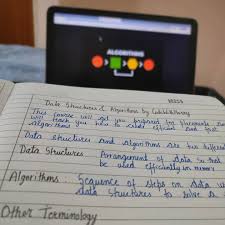 ALGORITHMS
Data Structures & Algorithms by CodeWithHarry
This course will get you prepared for placements and
will teach you how to create efficient and fast
algorithms
Data structures and algorithms are two different
Data Structures Arrangement of data so that
be used efficiently in memory
Algorithms Sequence of steps on data
data structures to solve a
Other Terminology